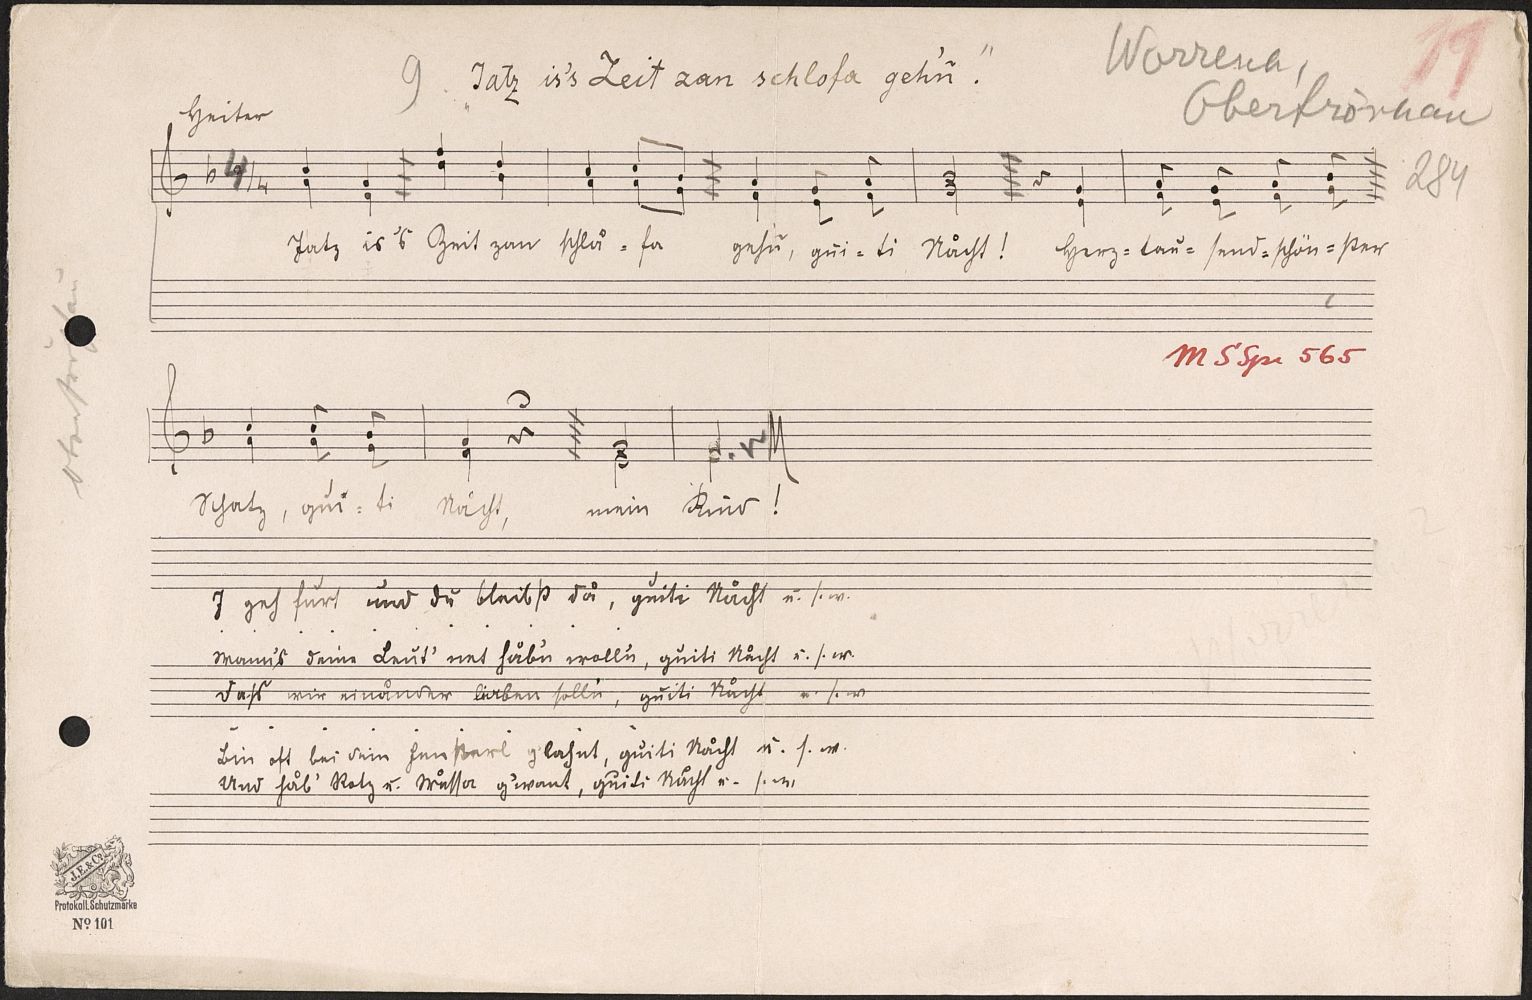 9. „Jatz is's Zeit zan schlofa geh'n."
Worresch,
Oberfröschau
19
284
Heiter
4/4
Jatz is's Zeit zan schlå-fa gehn, gui-ti Nåcht! Herz-tau-send-schön-ster
MS Spr 565
Schatz, gui-ti Nåcht, mein Kind!
I geh furt und du bleibst då, guiti Nåcht u.s.w.
Wann's deine Leut' net håbn wolln, guiti Nåcht u.s.w.
Daß wir einånder lieben solln, guiti Nåcht u.s.w
Bin oft bei dein Fensterl g'lahnt, guiti Nåcht u.s.w.
Und håb' Rotz u. Wåssa g'want, guiti Nåcht u.s.w.
J.E.&Co.
Protokoll. Schutzmarke
No 101